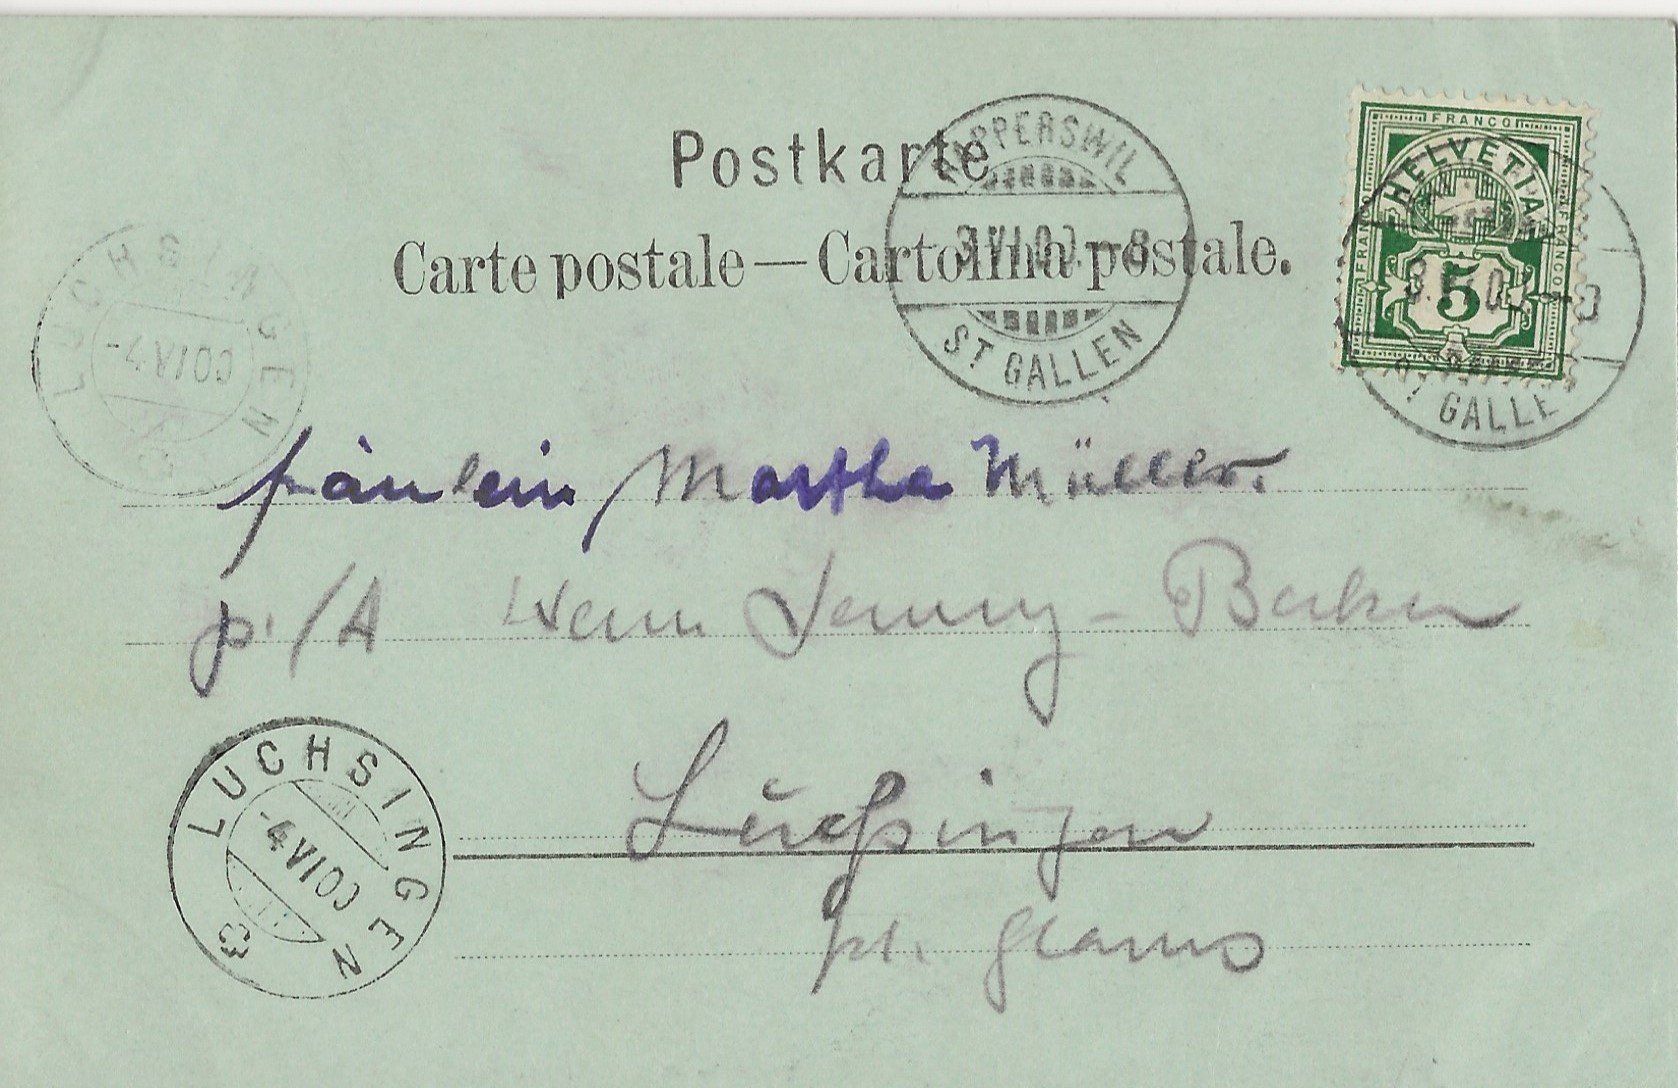 Postkarte
Carte postale — Cartolina postale.
RAPPERSWIL
3.VI.00.–8
ST GALLEN
FRANCO
HELVETIA
FRANCO
FRANCO
5
ST GALLE
LUCHSINGEN
-4.VI.00
fräulein Martha Müller.
p. /A Herrn Jenny - Becker
Luchsingen
kt. Glarus
LUCHSINGEN
-4.VI.00